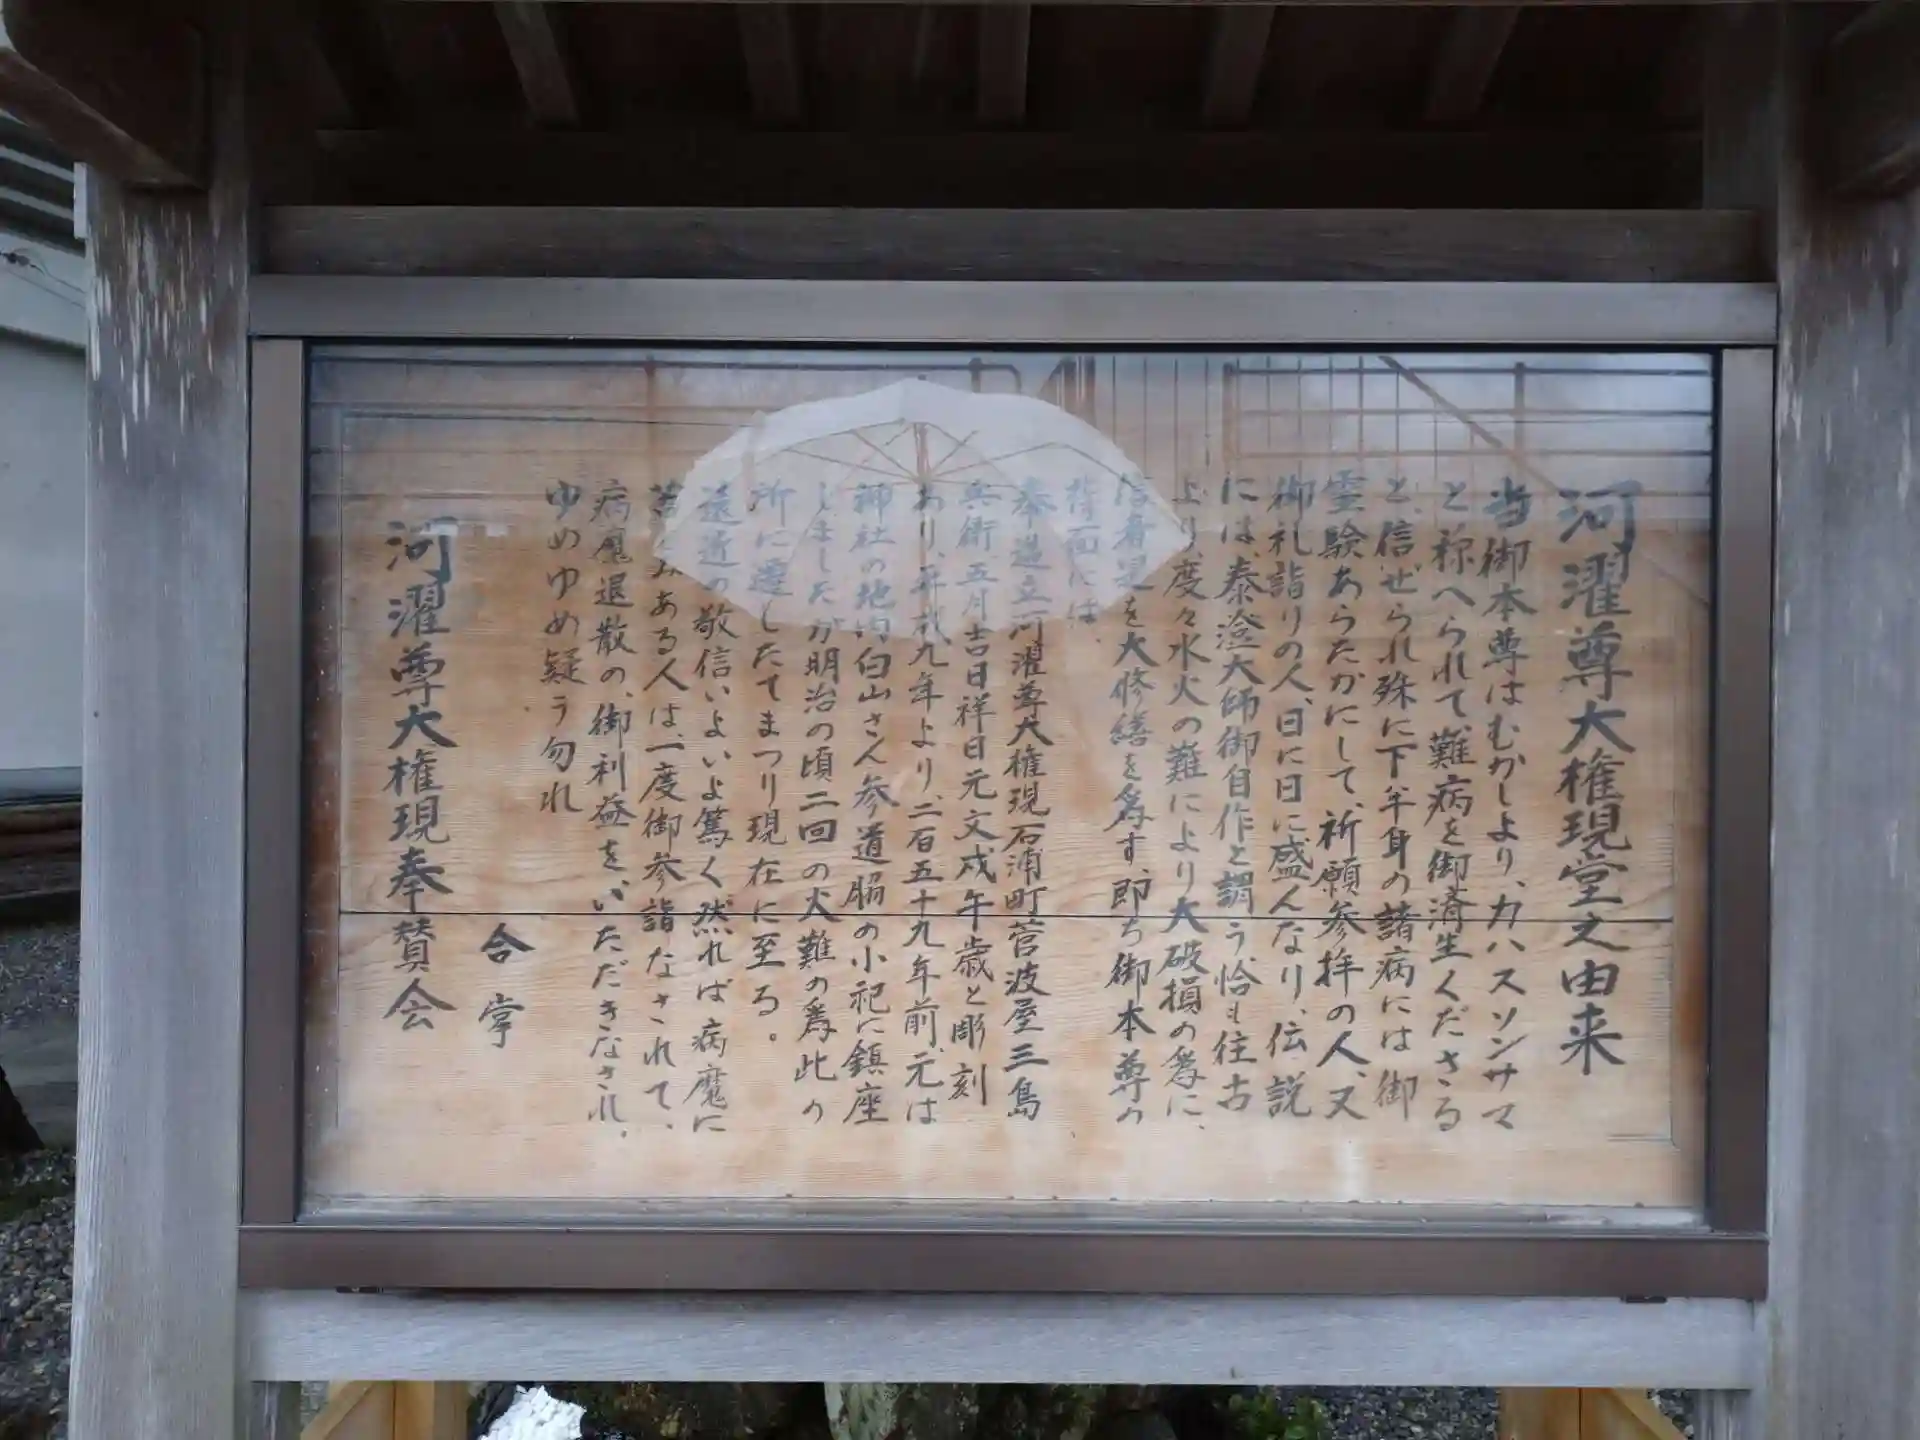 河濯尊大権現堂之由来
当御本尊はむかしより、カハスソンサマ
と称へられて、難病を御済生くださる
と、信ぜられ殊に下半身の諸病には御
霊験あらたかにして、祈願参拝の人、又
御礼詣りの人、日に日に盛んなり、伝説
には、泰澄大師御自作と謂う、恰も往古
より、度々水火の難により大破損の為に、
信者是を大修繕を為す、即ち御本尊の
背面には、
奉造立河濯尊大権現石浦町菅波屋三島
兵衛、五月吉日祥日元文戊午歳と彫刻
あり、平成九年より、二百五十九年前、元は
神社の地内白山さん参道脇の小祀に鎮座
しましたが明治の頃二回の火難の為此の
所に遷したてまつり現在に至る。
遠近の敬信いよいよ篤く、然れば病魔に
ある人は、一度御参詣なされて、
病魔退散の、御利益をいただきなされ、
ゆめゆめ疑う勿れ
合掌
河濯尊大権現奉賛会